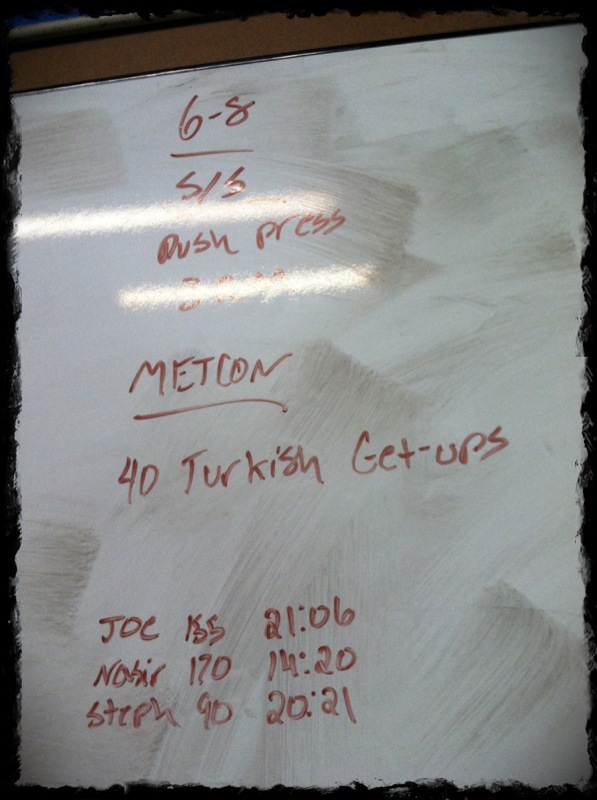 6-8
S/S
Push press
METCON
40 Turkish Get-ups
JOE 155 21:06
Nasir 170 14:20
Steph 90 20:21